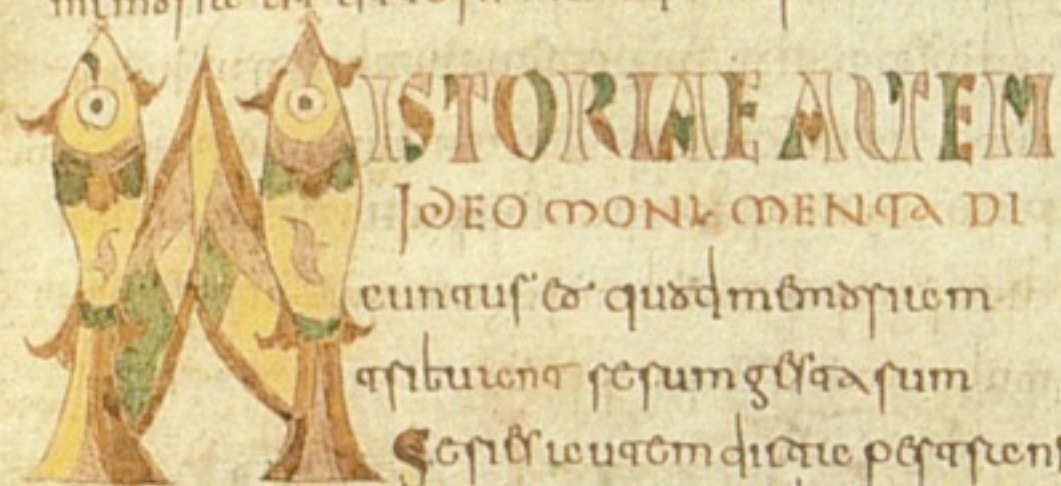 HISTORIAE AUTEM
IDEO MONUMENTA DI
cuntur eo quod memoriam
tribuant rerum gestarum
Series autem dicta per tran